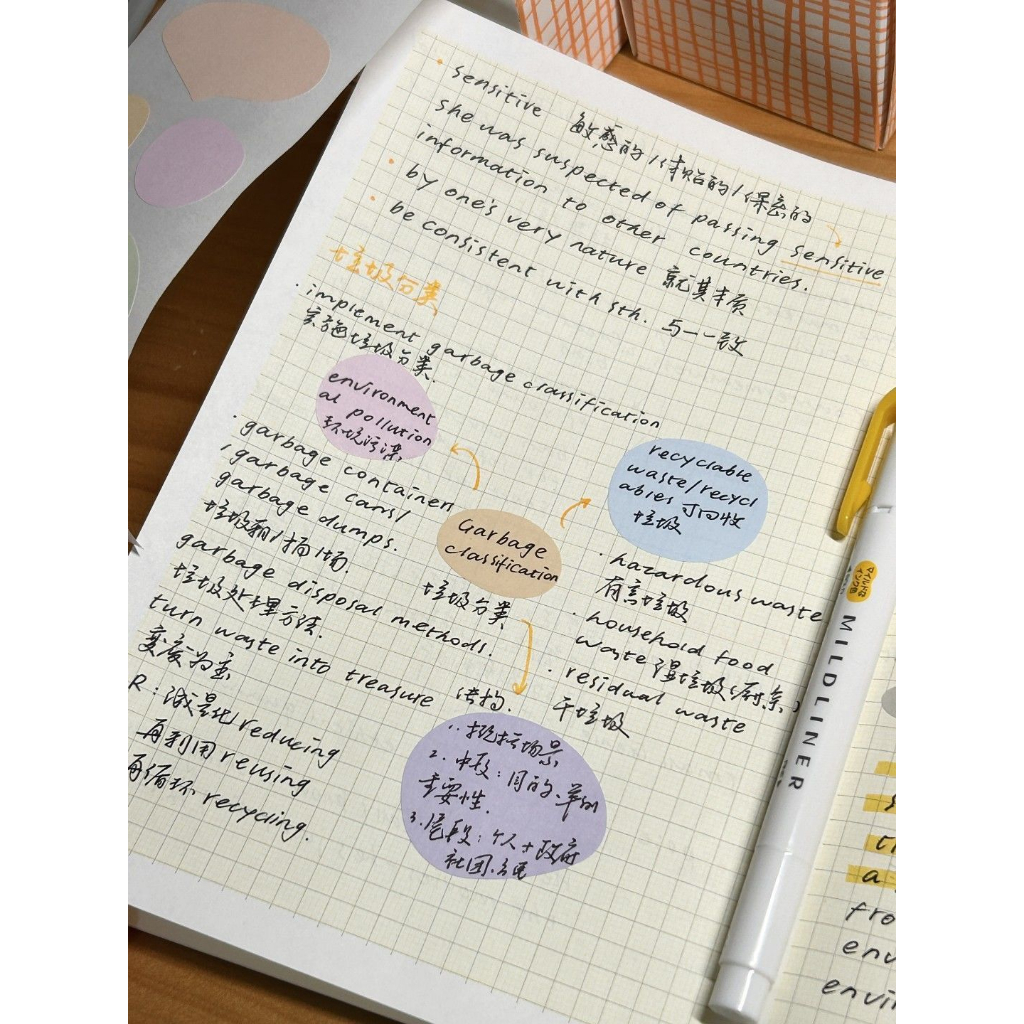 sensitive 敏感的/体贴的/保密的
she was suspected of passing sensitive
information to other countries.
by one's very nature 就其本质
be consistent with sth. 与一一致
垃圾分类
implement garbage classification
实施垃圾分类.
environment
al pollution
环境污染
garbage containers
/garbage cans/
garbage dumps.
垃圾桶/场.
garbage disposal methods.
垃圾处理方法.
turn waste into treasure
变废为宝
R:减量化reducing
再利用reusing
再循环recycling.
Garbage
classification
垃圾分类
recyclable
waste/recycl
ables 可回收
垃圾
hazardous waste
有害垃圾
household food
waste 湿垃圾(厨余)
residual waste
干垃圾
结构.
1.
2. 中段:目的、
重要性.
3.尾段:个人+政府
社团.
マイルドライナー
MILDLINER
a
fro
env
envi